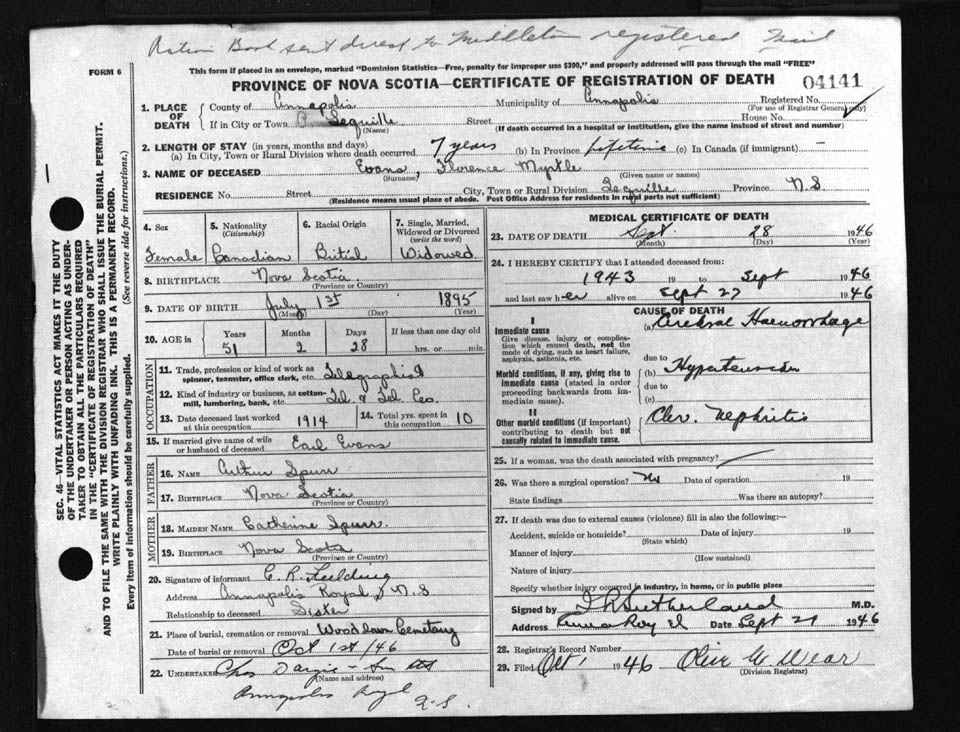 Ration Book sent direct to Middleton registered Mail
FORM 6
This form if placed in an envelope, marked "Dominion Statistics—Free, penalty for improper use $300," and properly addressed will pass through the mail "FREE"
PROVINCE OF NOVA SCOTIA—CERTIFICATE OF REGISTRATION OF DEATH
04141
1. PLACE OF DEATH
County of Annapolis Municipality of Annapolis Registered No.
(For use of Registrar General only)
If in City or Town Lequille Street House No.
(Name) (If death occurred in a hospital or institution, give the name instead of street and number)
2. LENGTH OF STAY (in years, months and days)
(a) In City, Town or Rural Division where death occurred 7 years (b) In Province Lifetime (c) In Canada (if immigrant) —
3. NAME OF DECEASED Evans, Florence Myrtle
(Surname) (Given name or names)
RESIDENCE No. Street City, Town or Rural Division Lequille Province N.S.
(Residence means usual place of abode. Post Office Address for residents in rural parts not sufficient)
4. Sex
Female
5. Nationality
(Citizenship)
Canadian
6. Racial Origin
7. Single, Married, Widowed or Divorced
(write the word)
Widowed
8. BIRTHPLACE Nova Scotia
(Province or Country)
9. DATE OF BIRTH July 1st 1895
(Month) (Day) (Year)
10. AGE in
Years Months Days If less than one day old
51 2 28 hrs. or min.
OCCUPATION
11. Trade, profession or kind of work as spinner, teamster, office clerk, etc. Telegraphist
12. Kind of industry or business, as cotton-mill, lumbering, bank, etc. Tel. & Tel. Co.
13. Date deceased last worked at this occupation 1914
14. Total yrs. spent in this occupation 10
15. If married give name of wife or husband of deceased Earl Evans
FATHER
16. NAME Arthur Spurr
17. BIRTHPLACE Nova Scotia
(Province or Country)
MOTHER
18. MAIDEN NAME Catherine Spurr.
19. BIRTHPLACE Nova Scotia
(Province or Country)
20. Signature of informant C. R. Fielding
Address Annapolis Royal, N.S.
Relationship to deceased Sister
21. Place of burial, cremation or removal Woodlawn Cemetary
Date of burial or removal Oct 1st/46
22. UNDERTAKER Chas Dargie
(Name and address)
Annapolis Royal
MEDICAL CERTIFICATE OF DEATH
23. DATE OF DEATH Sept. 28 1946
(Month) (Day) (Year)
24. I HEREBY CERTIFY that I attended deceased from:
1943 19 to Sept 1946
and last saw her alive on Sept 27 1946
CAUSE OF DEATH
I
Immediate cause
Give disease, injury or complication which caused death, not the mode of dying, such as heart failure, asphyxia, asthenia, etc.
(a) Cerebral Haemorrhage
due to
Morbid conditions, if any, giving rise to immediate cause (stated in order proceeding backwards from immediate cause).
(b) Hypertension
due to
(c)
II
Other morbid conditions (if important) contributing to death but not causally related to immediate cause.
Nephritis
25. If a woman, was the death associated with pregnancy?
26. Was there a surgical operation? No Date of operation 19
State findings Was there an autopsy?
27. If death was due to external causes (violence) fill in also the following:—
Accident, suicide or homicide? Date of injury 19
(State which)
Manner of injury
(How sustained)
Nature of injury
Specify whether injury occurred in industry, in home, or in public place
Signed by Sutherland M.D.
Address Date Sept 1946
28. Registrar's Record Number
29. Filed Oct 1 1946
(Division Registrar)
SEC. 46—VITAL STATISTICS ACT MAKES IT THE DUTY
OF THE UNDERTAKER OR PERSON ACTING AS UNDER-
TAKER TO OBTAIN ALL THE PARTICULARS REQUIRED
IN THE "CERTIFICATE OF REGISTRATION OF DEATH"
AND TO FILE THE SAME WITH THE DIVISION REGISTRAR WHO SHALL ISSUE THE BURIAL PERMIT.
WRITE PLAINLY WITH UNFADING INK. THIS IS A PERMANENT RECORD.
Every item of information should be carefully supplied. (See reverse side for instructions.)